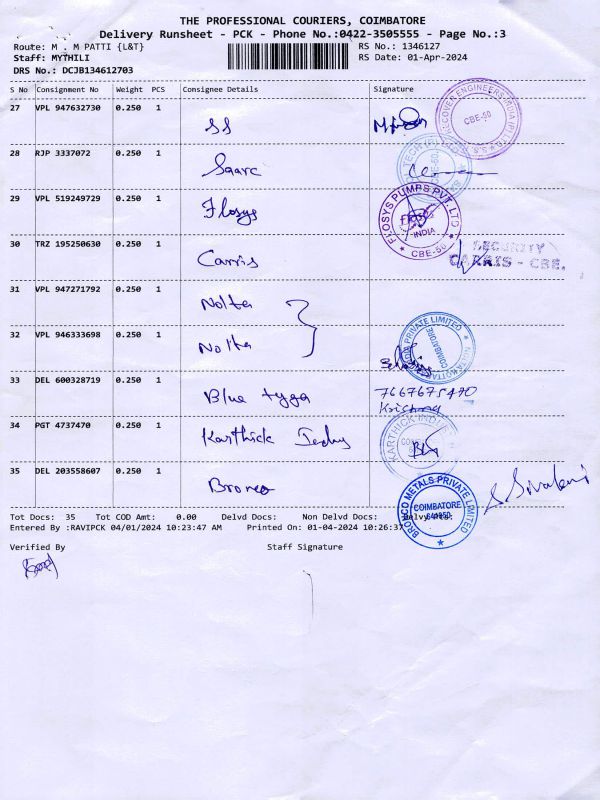 THE PROFESSIONAL COURIERS, COIMBATORE
Delivery Runsheet - PCK - Phone No.:0422-3505555 - Page No.:3
Route: M . M PATTI {L&T} RS No.: 1346127
Staff: MYTHILI RS Date: 01-Apr-2024
DRS No.: DCJB134612703
S No Consignment No Weight PCS Consignee Details Signature
27 VPL 947632730 0.250 1 SS
ENGINEERS INDIA (P) CBE-50
28 RJP 3337072 0.250 1 Saarc
29 VPL 519249729 0.250 1 Flosys
FLOSYS PUMPS PVT. LTD INDIA CBE-50
30 TRZ 195250630 0.250 1 Carris
SECURITY
CARRIS - CBE.
31 VPL 947271792 0.250 1 Nolta
32 VPL 946333698 0.250 1 Nolta
PRIVATE LIMITED COIMBATORE
33 DEL 600328719 0.250 1 Blue tyga
7667675470
Krishna
34 PGT 4737470 0.250 1 Karthick
KARTHICK INDIA
35 DEL 203558607 0.250 1 Bronco
BRONCO METALS PRIVATE LIMITED COIMBATORE
Tot Docs: 35 Tot COD Amt: 0.00 Delvd Docs: Non Delvd Docs:
Entered By :RAVIPCK 04/01/2024 10:23:47 AM Printed On: 01-04-2024 10:26:37
Verified By Staff Signature